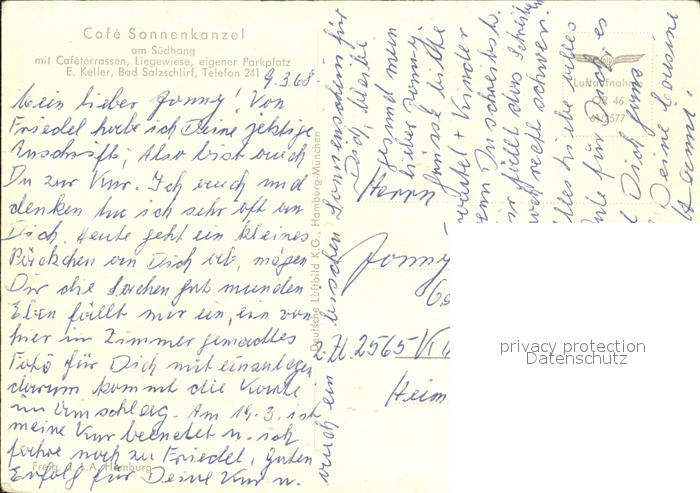 Café Sonnenkanzel
am Südhang
mit Caféterrassen, Liegewiese, eigener Parkplatz
E. Keller, Bad Salzschlirf, Telefon 241
9.3.68.
Mein lieber Jonny! Von
Friedel habe ich Deine jetzige
Anschrift; Also bist auch
Du zur Kur. Ich auch und
denken tue ich sehr oft an
Dich. Heute geht ein kleines
Päckchen an Dich ab, mögen
Dir die Sachen gut munden
Eben fällt mir ein, ein von
hier im Zimmer gemachtes
Foto für Dich mit einzulegen
darum kommt die Karte
im Umschlag. Am 19.3. ist
meine Kur beendet u. ich
fahre noch zu Friedel, Guten
Erfolg für Deine Kur u.
auch ein bisschen Sonnenschein für
Dich, bleibe
gesund mein
lieber Jonny
Grüsse bitte
+ Kinder
wenn Du schreibst.
fällt das Schreiben
noch recht schwer.
Alles Liebe alles
Gute für Dich es
Dich ganz
Deine Cousine
Freig. d. L.A. Hamburg
Deutsche Luftbild K.G., Hamburg-München
Luftaufnahme
46
577
Herrn
Jonny
z. Zt. 2565
Heim
privacy protection
Datenschutz